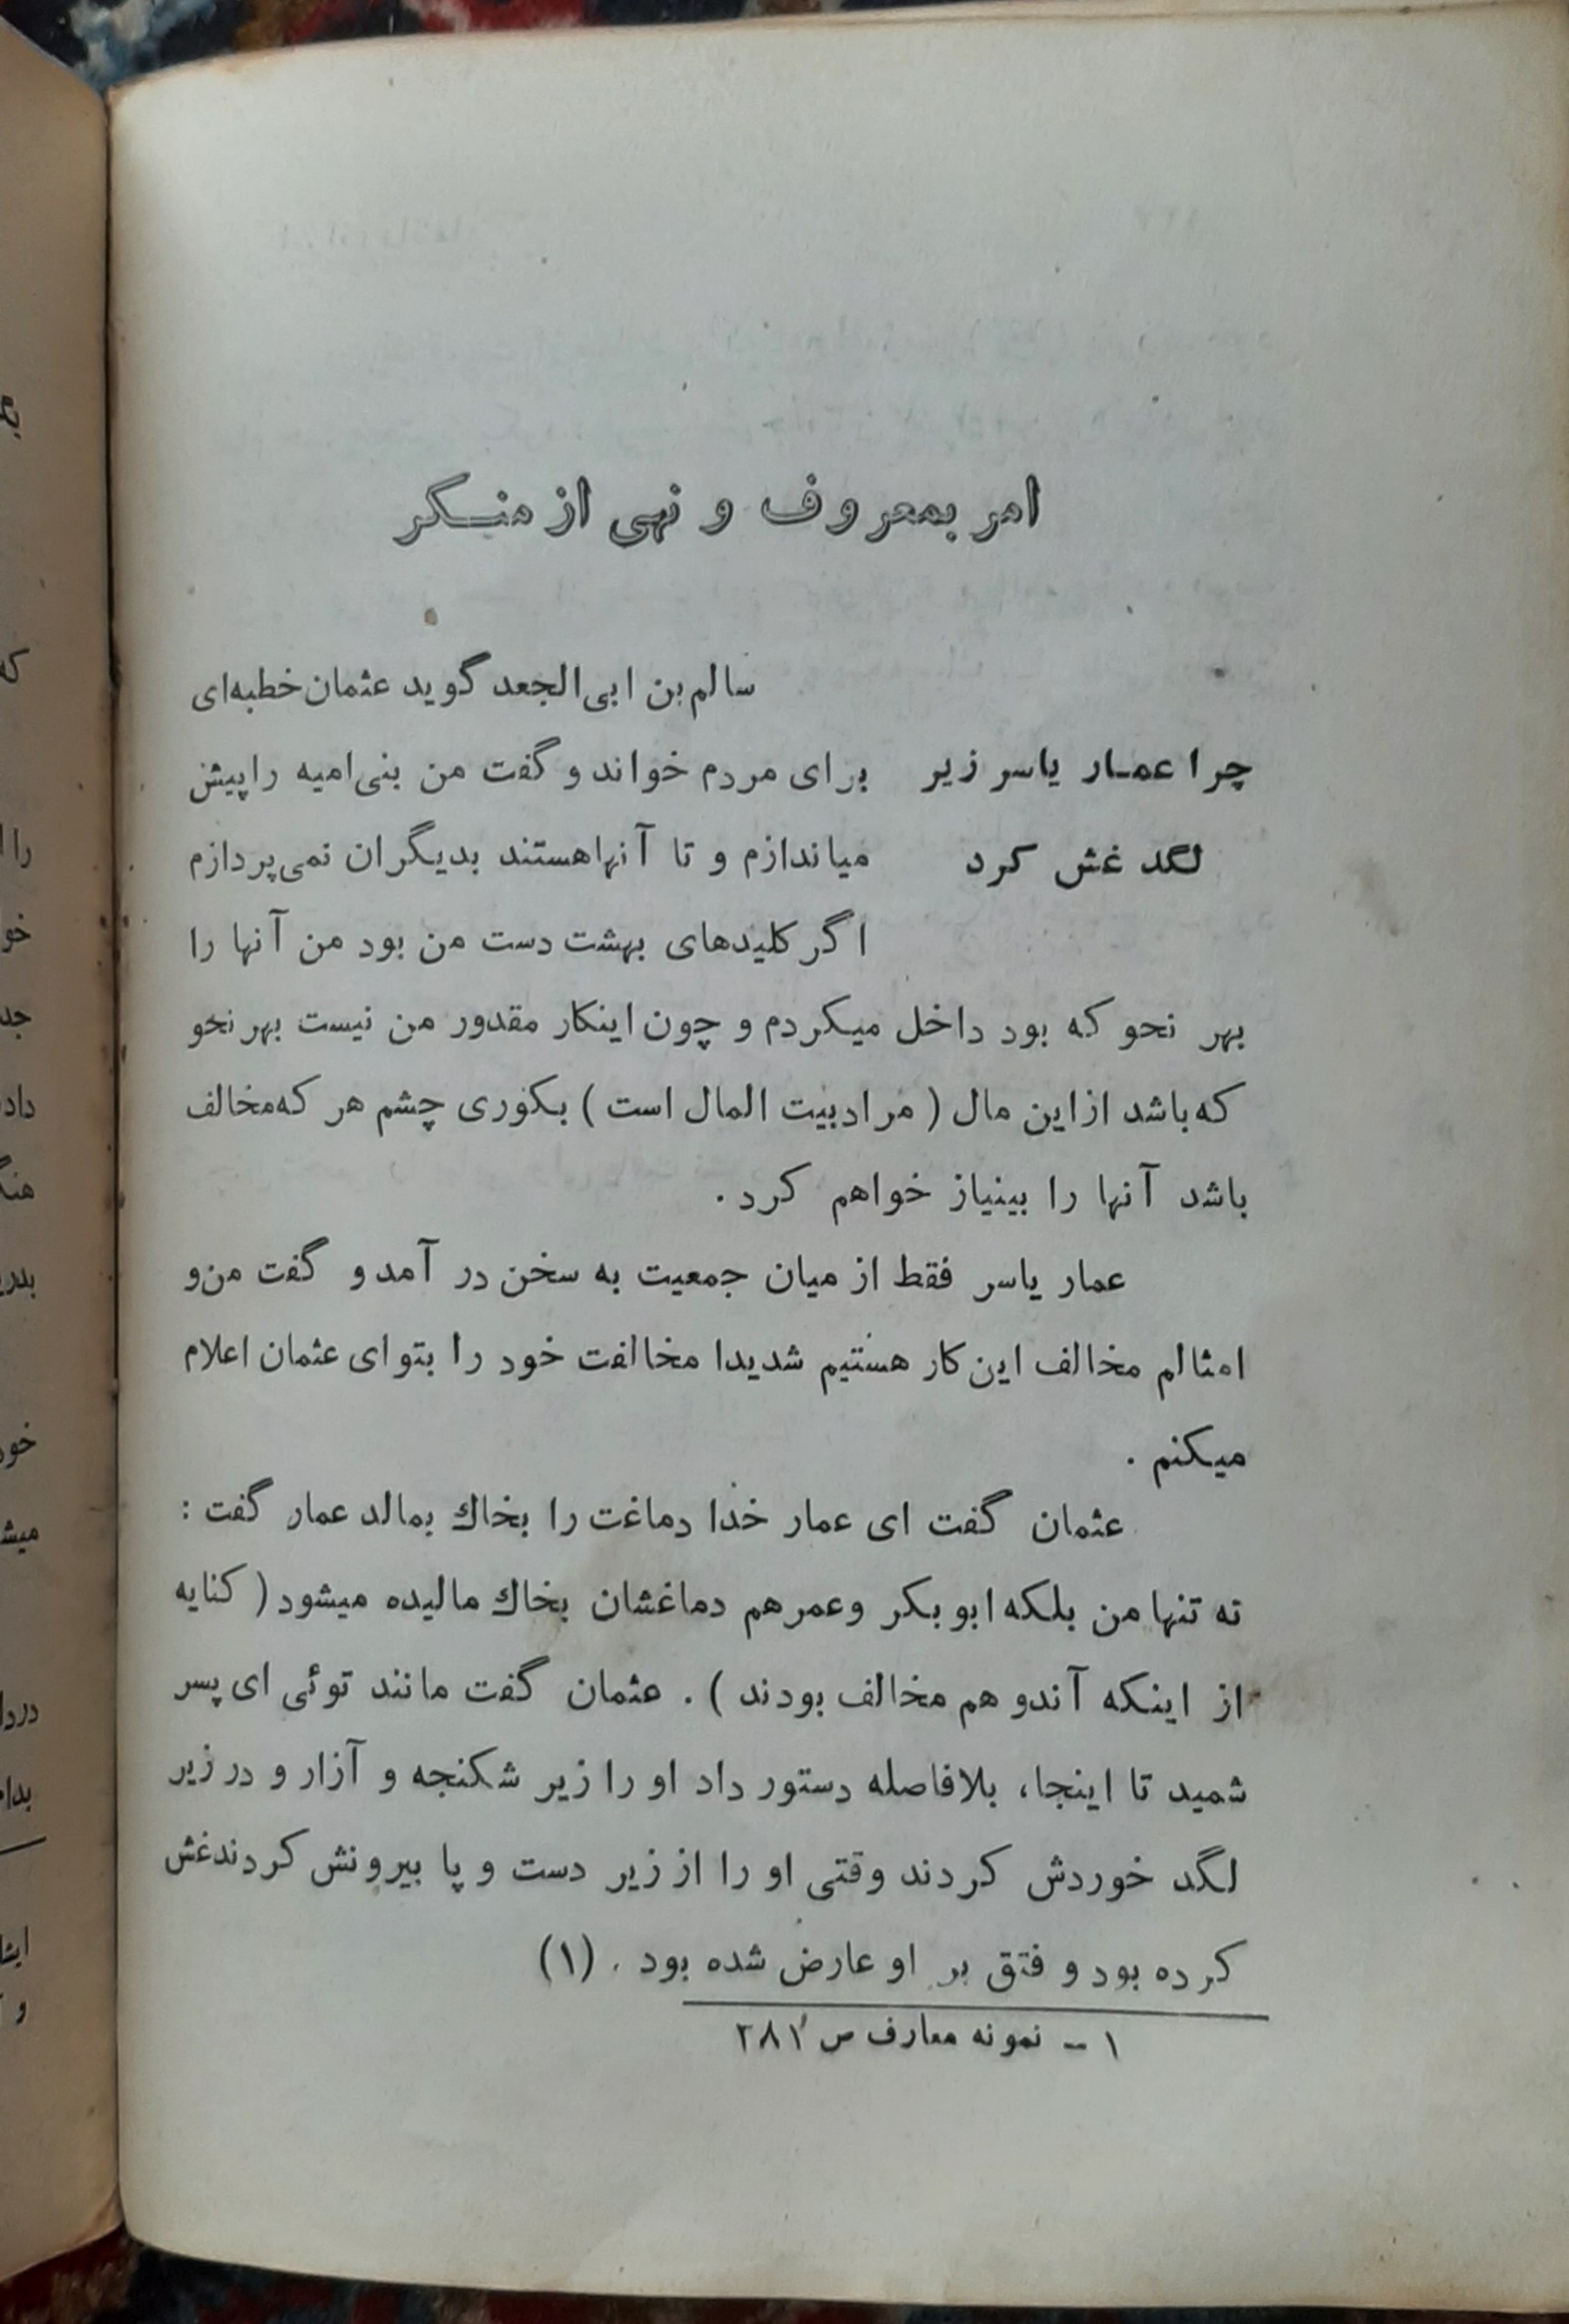 امر بمعروف و نهی از منکر
سالم بن ابی‌الجعد گوید عثمان خطبه‌ای
چرا عمار یاسر زیر
برای مردم خواند و گفت من بنی‌امیه را پیش
لگد غش کرد
میاندازم و تا آنها هستند بدیگران نمی‌پردازم
اگر کلیدهای بهشت دست من بود من آنها را
بهر نحو که بود داخل میکردم و چون اینکار مقدور من نیست بهر نحو
که باشد از این مال ( مراد بیت المال است ) بکوری چشم هر که مخالف
باشد آنها را بینیاز خواهم کرد .
عمار یاسر فقط از میان جمعیت به سخن در آمد و گفت من و
امثالم مخالف این کار هستیم شدیدا مخالفت خود را بتو ای عثمان اعلام
میکنم .
عثمان گفت ای عمار خدا دماغت را بخاك بمالد عمار گفت :
نه تنها من بلکه ابو بکر و عمر هم دماغشان بخاك مالیده میشود ( کنایه
از اینکه آندو هم مخالف بودند ) . عثمان گفت مانند توئی ای پسر
شمید تا اینجا، بلافاصله دستور داد او را زیر شکنجه و آزار و در زیر
لگد خوردش کردند وقتی او را از زیر دست و پا بیرونش کردند غش
کرده بود و فتق بر او عارض شده بود . (۱)
۱ - نمونه معارف ص ۲۸۱